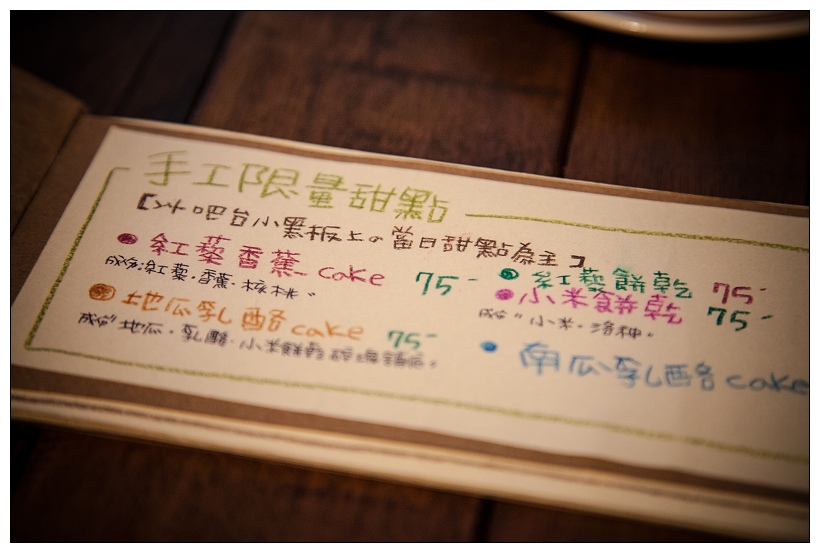 手工限量甜點
【以吧台小黑板上の當日甜點為主】
紅藜香蕉 cake 75-
成份:紅藜・香蕉・核桃。
地瓜乳酪 cake 75-
成份:地瓜・乳酪・小米餅乾
紅藜餅乾 75-
小米餅乾 75-
成份:小米・洛神。
南瓜乳酪 cake